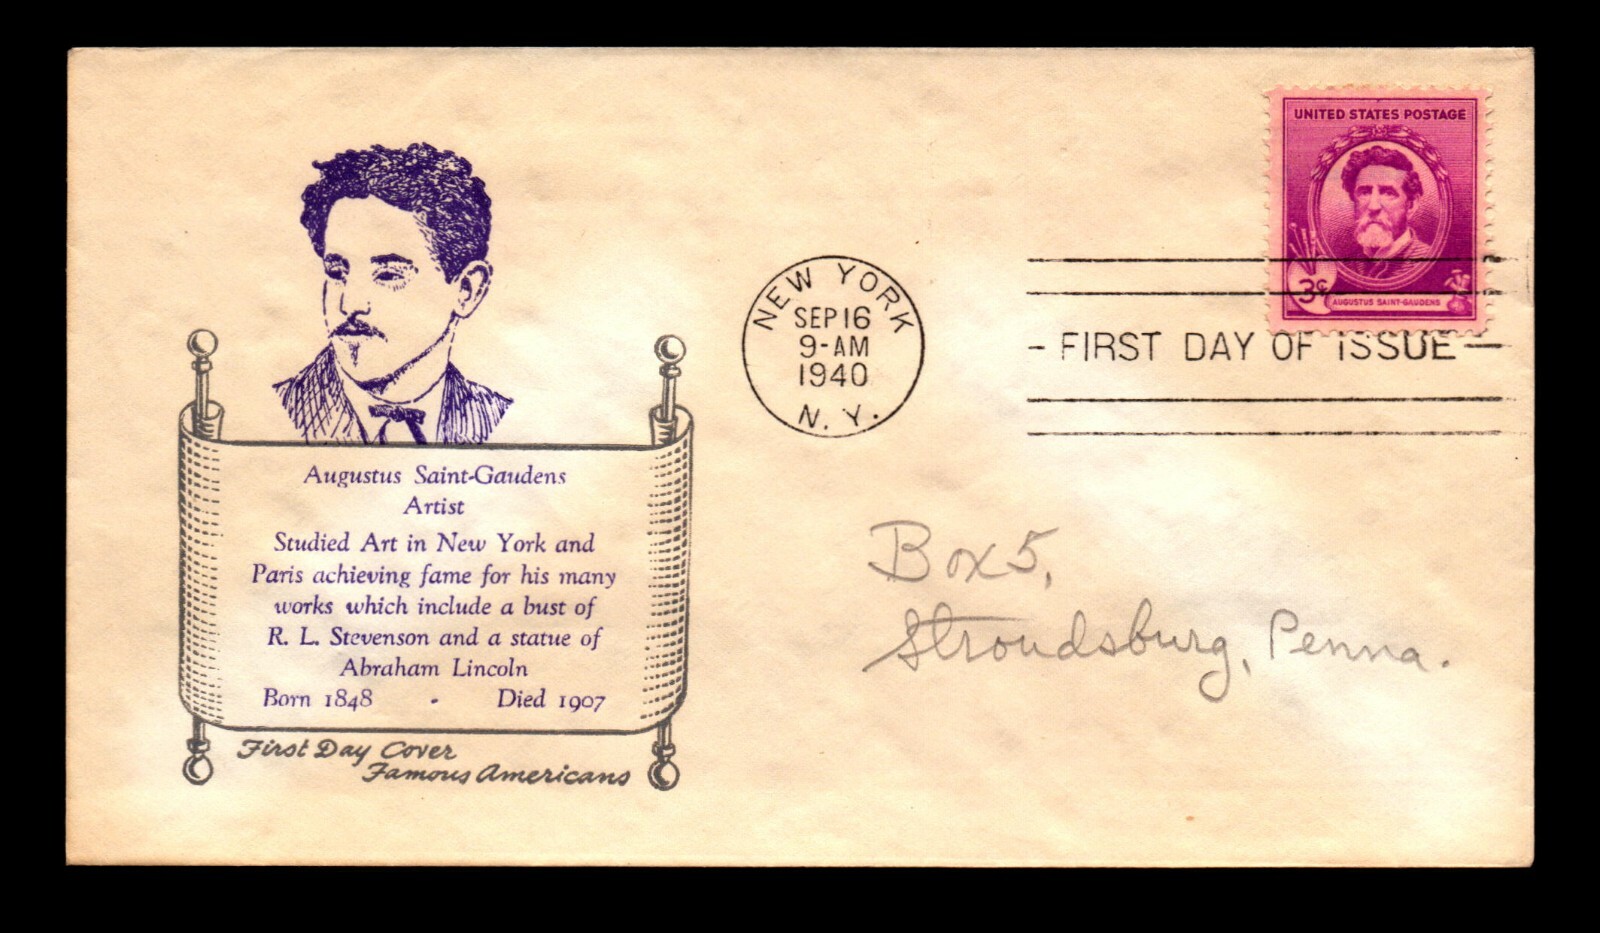 Augustus Saint-Gaudens
Artist
Studied Art in New York and
Paris achieving fame for his many
works which include a bust of
R. L. Stevenson and a statue of
Abraham Lincoln
Born 1848 - Died 1907
First Day Cover
Famous Americans
NEW YORK
SEP 16
9-AM
1940
N. Y.
UNITED STATES POSTAGE
3¢
AUGUSTUS SAINT-GAUDENS
- FIRST DAY OF ISSUE -
Box 5,
Stroudsburg, Penna.